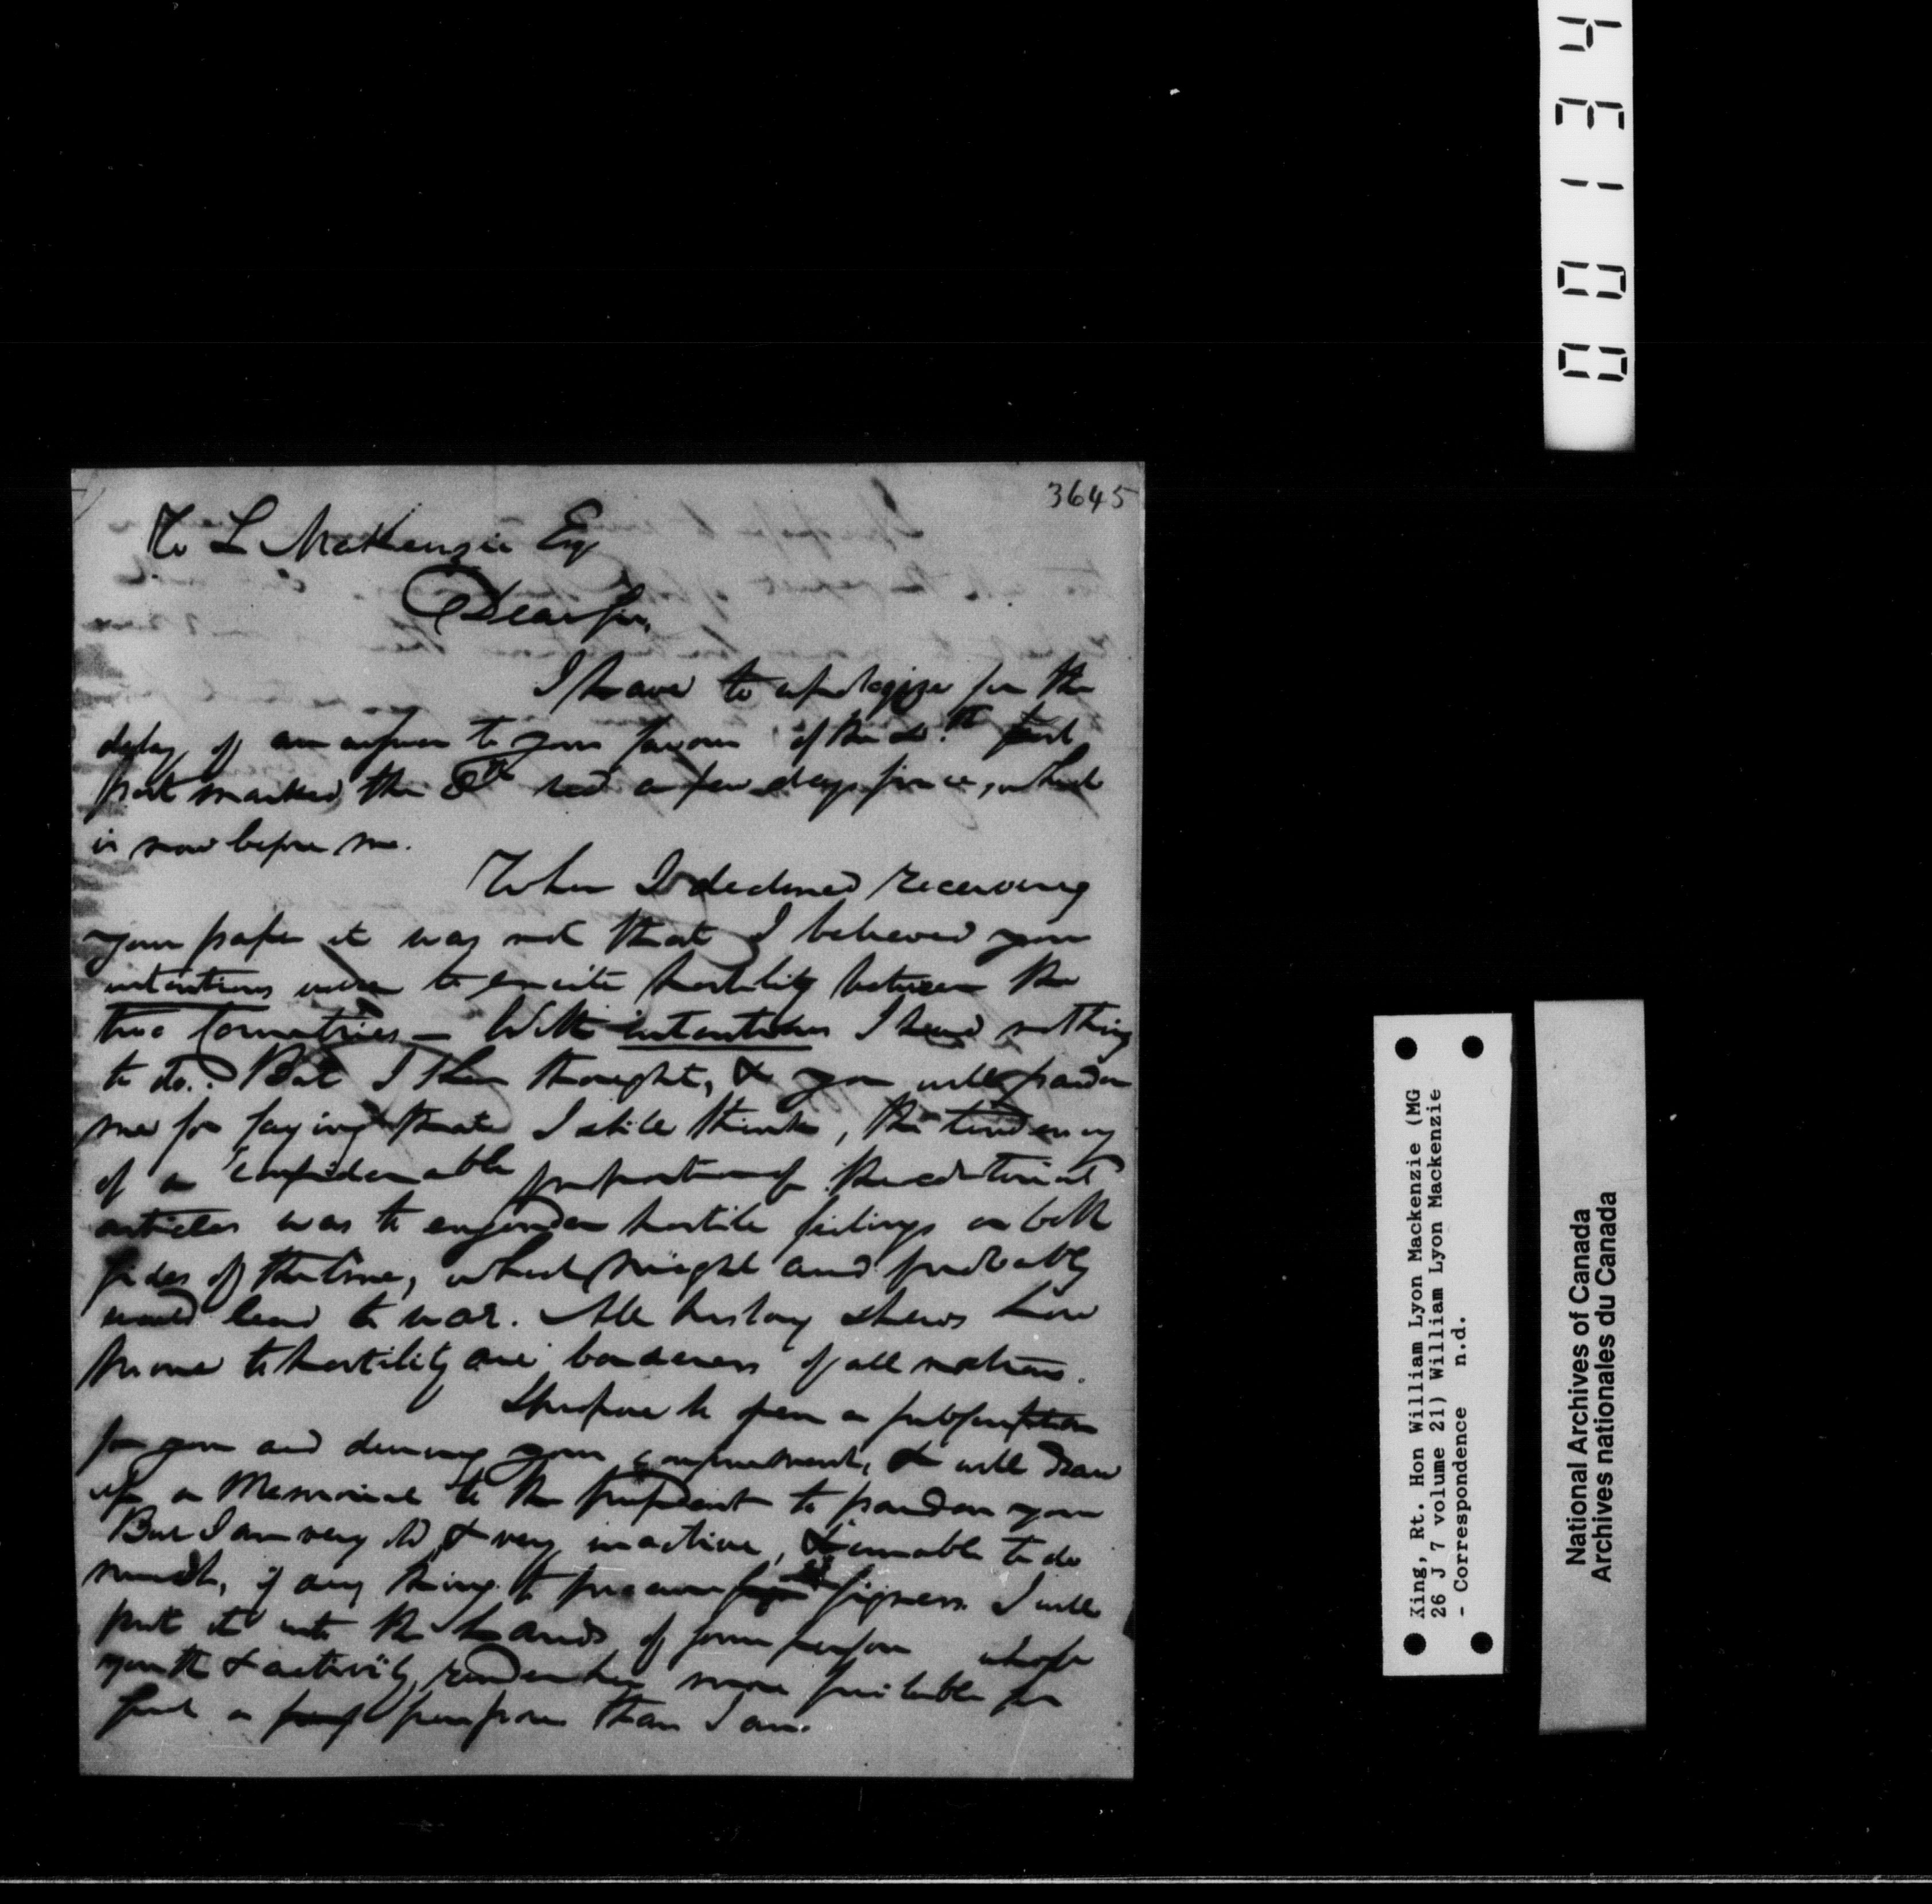 3645
W L MacKenzie Esq
Dear Sir,
I have to apologize for the
delay of an answer to your favour of the
post marked the 8th recd a few days since, which
is now before me.
When I declined receiving
your paper it was not that I believed your
intentions were to excite hostility between the
two Countries – With intentions I have nothing
to do. But I then thought, & you will pardon
me for saying that I still think, the tendency
of a considerable proportion of the editorial
articles was to engender hostile feelings on both
sides of the line, which might and probably
would lead to war. All history shews how
prone to hostility are borderers of all nations.
I propose to open a subscription
for you and during your confinement, & will draw
up a Memorial to the President to pardon you
But I am very old, & very inactive, & unable to do
much, if any thing to procure signers. I will
put it into the hands of some person whose
youth & activity, render him more suitable for
such a purpose than I am.
0 0 1 3 4
King, Rt. Hon William Lyon Mackenzie (MG
26 J 7 volume 21) William Lyon Mackenzie
- Correspondence n.d.
National Archives of Canada
Archives nationales du Canada